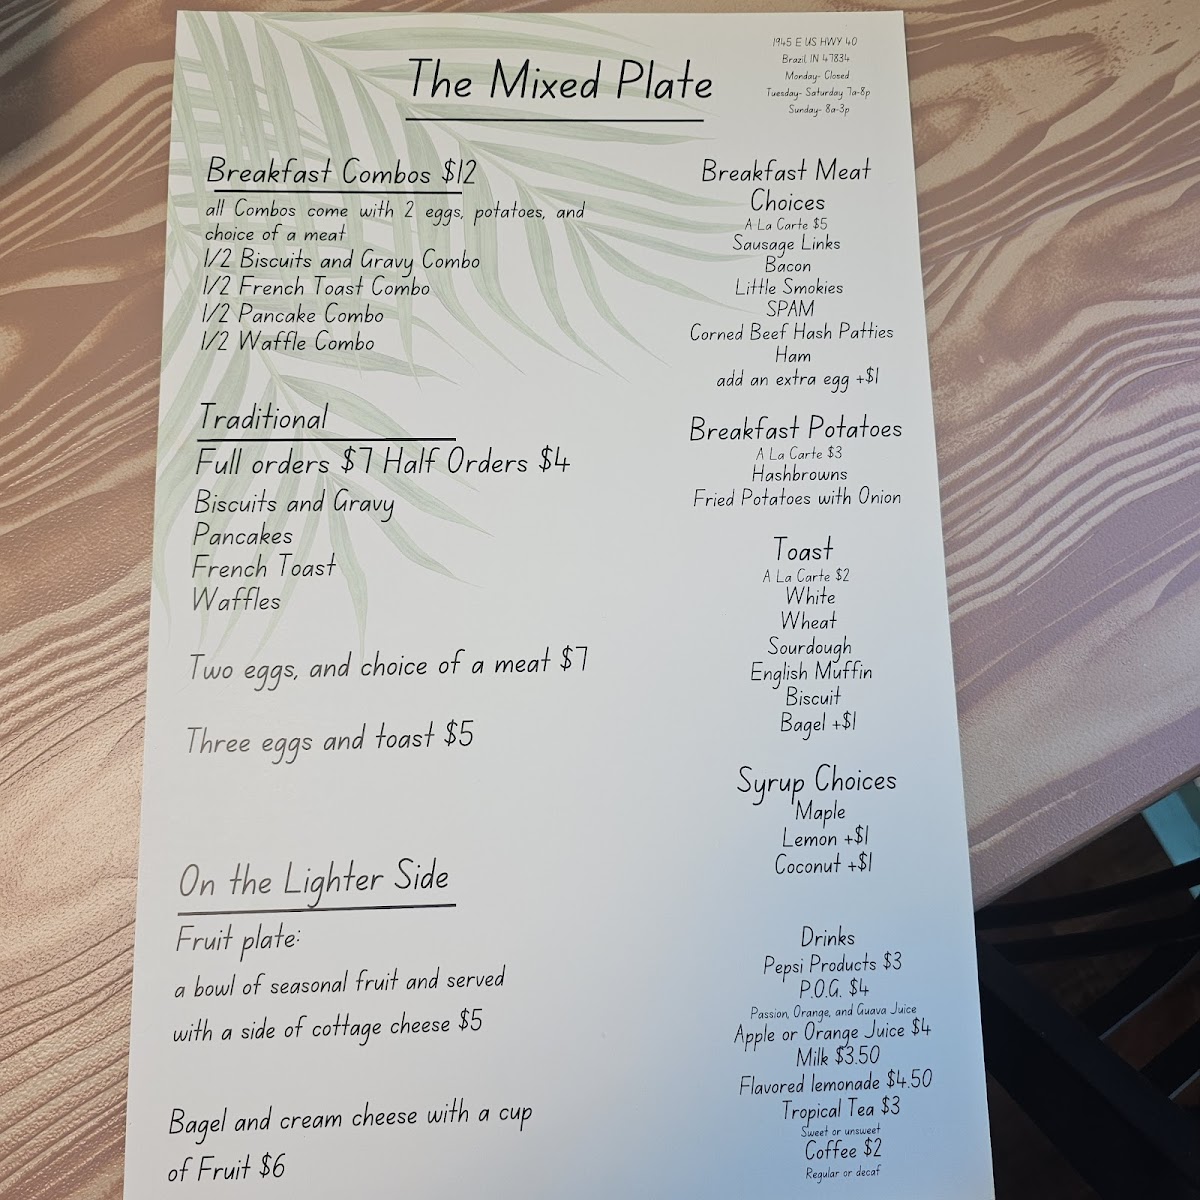 The Mixed Plate
1945 E US HWY 40
Brazil, IN 47834
Monday- Closed
Tuesday- Saturday 7a-8p
Sunday- 8a-3p
Breakfast Combos $12
all Combos come with 2 eggs, potatoes, and
choice of a meat
1/2 Biscuits and Gravy Combo
1/2 French Toast Combo
1/2 Pancake Combo
1/2 Waffle Combo
Traditional
Full orders $7 Half Orders $4
Biscuits and Gravy
Pancakes
French Toast
Waffles
Two eggs, and choice of a meat $7
Three eggs and toast $5
On the Lighter Side
Fruit plate:
a bowl of seasonal fruit and served
with a side of cottage cheese $5
Bagel and cream cheese with a cup
of Fruit $6
Breakfast Meat
Choices
A La Carte $5
Sausage Links
Bacon
Little Smokies
SPAM
Corned Beef Hash Patties
Ham
add an extra egg +$1
Breakfast Potatoes
A La Carte $3
Hashbrowns
Fried Potatoes with Onion
Toast
A La Carte $2
White
Wheat
Sourdough
English Muffin
Biscuit
Bagel +$1
Syrup Choices
Maple
Lemon +$1
Coconut +$1
Drinks
Pepsi Products $3
P.O.G. $4
Passion, Orange, and Guava Juice
Apple or Orange Juice $4
Milk $3.50
Flavored lemonade $4.50
Tropical Tea $3
Sweet or unsweet
Coffee $2
Regular or decaf